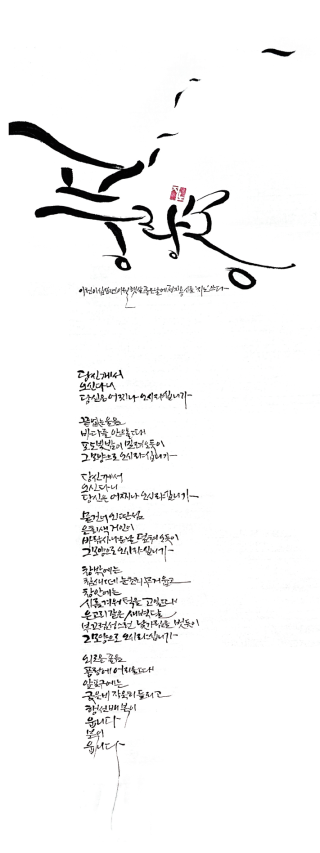 풍랑몽
햇살 좋은날에 정지용 시를 쓰다
당신께서
오신다니
당신은 어찌나 오시랴십니까
끝없는 울음
바다를 안으올때
포도빛 밤이 밀려오듯이
그모양으로 오시랴십니까
당신께서
오신다니
당신은 어찌나 오시랴십니까
물건너 외딴섬
은회색 거인이
바람사나운 날 덮쳐오듯이
그모양으로 오시랴십니까
창밖에는
참새떼 눈초리 무거웁고
창안에는
시름겨워 턱을 고일때
은고리같은 새벽달
부끄럼성스런 낯가림을 벗듯이
그모양으로 오시랴십니까
외로운 졸음
풍랑에 어리울때
앞포구에는
궂은비 자욱히 둘리고
행선배 북이
웁니다
북이
웁니다